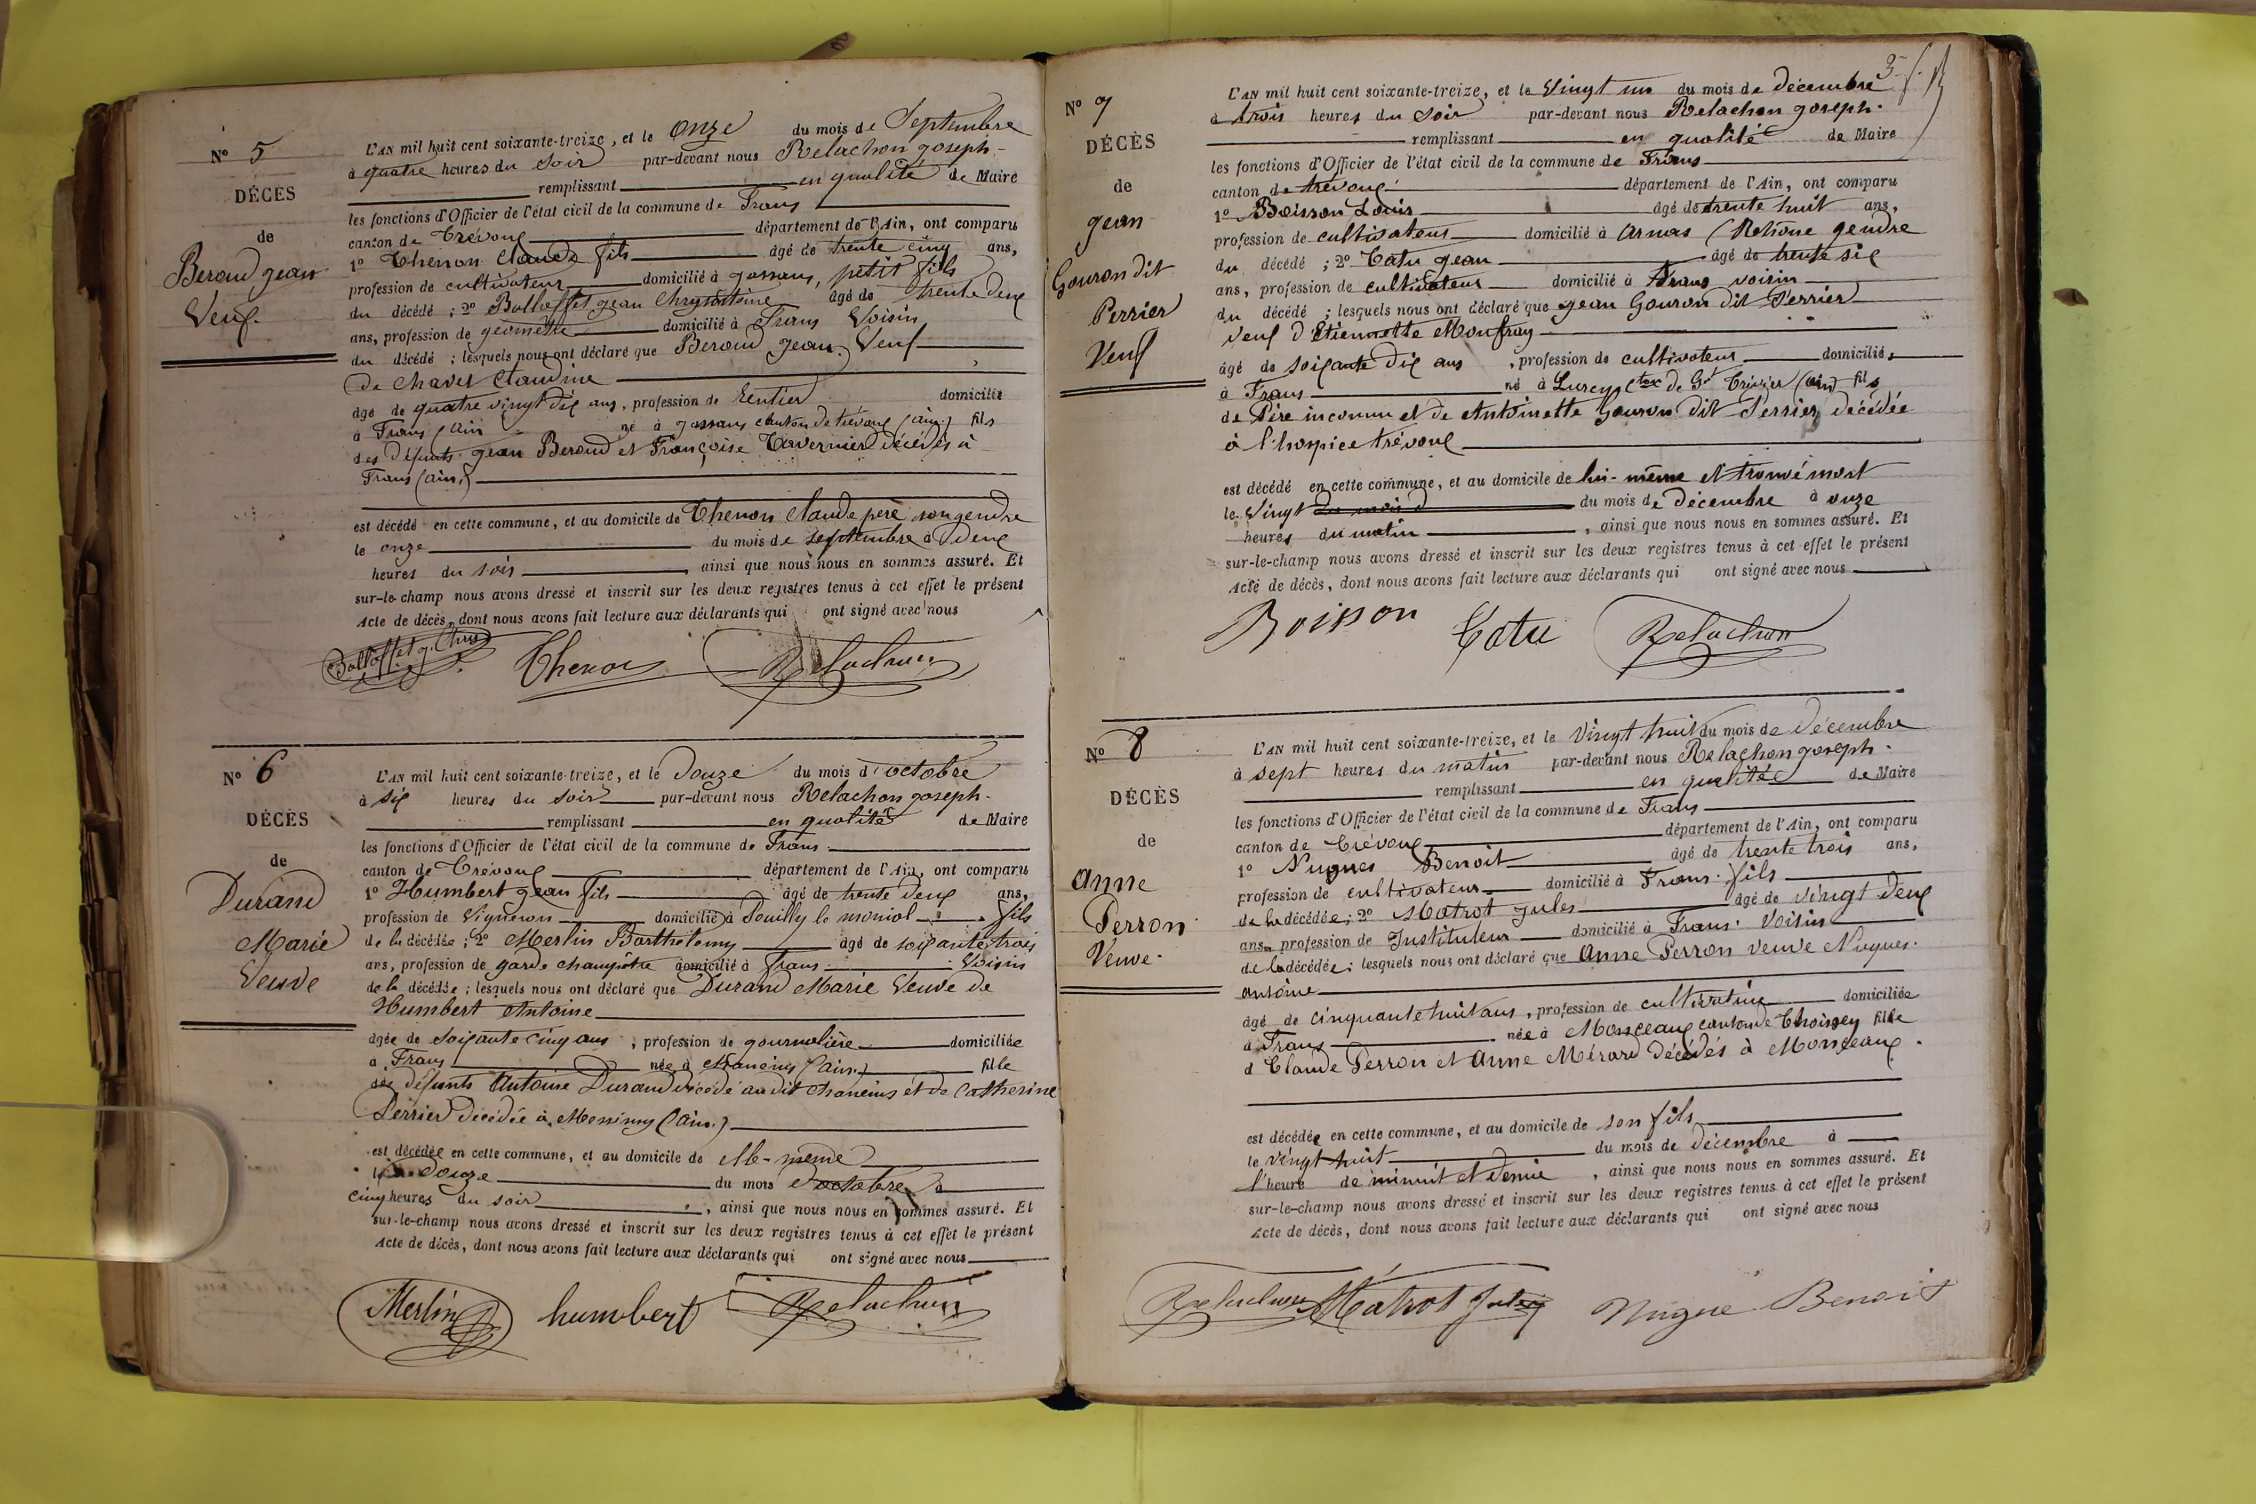 N° 5
DÉCÈS
de
Beroud Jean
Veuf.
L'AN mil huit cent soixante-treize, et le onze du mois de Septembre
à quatre heures du soir par-devant nous Relachon Joseph.
remplissant en qualité de Maire
les fonctions d'Officier de l'état civil de la commune de Frans
canton de Trévoux département de l'Ain, ont comparu
1° Thenon Claude fils âgé de trente cinq ans,
profession de cultivateur domicilié à Jassans, petit fils
du décédé ; 2° Balloffet Jean Chrysostôme âgé de trente deux
ans, profession de géomètre domicilié à Frans Voisin
du décédé ; lesquels nous ont déclaré que Beroud Jean. Veuf
de Chavet Claudine
âgé de quatre vingt dix ans, profession de Rentier domicilié
à Frans (Ain né à Jassans canton de trévoux (ain) fils
des défunts Jean Beroud et Françoise Tavernier décédés à
Frans (ain)
est décédé en cette commune, et au domicile de Thenon Claude père son gendre
le onze du mois de septembre à deux
heures du soir , ainsi que nous nous en sommes assuré. Et
sur-le-champ nous avons dressé et inscrit sur les deux registres tenus à cet effet le présent
Acte de décès, dont nous avons fait lecture aux déclarants qui ont signé avec nous
Balloffet J. Chrys Thenon Relachon
N° 6
DÉCÈS
de
Durand
Marie
Veuve
L'AN mil huit cent soixante-treize, et le Douze du mois d'octobre
à six heures du soir par-devant nous Relachon Joseph.
remplissant en qualité de Maire
les fonctions d'Officier de l'état civil de la commune de Frans.
canton de Trévoux département de l'Ain, ont comparu
1° Humbert Jean fils âgé de trente deux ans,
profession de Vigneron domicilié à Pouilly le monial fils
de la décédée ; 2° Merlin Barthélemy âgé de soixante trois
ans, profession de garde champêtre domicilié à Frans. Voisin
de la décédée ; lesquels nous ont déclaré que Durand Marie Veuve de
Humbert Antoine
âgée de soixante cinq ans, profession de journalière domiciliée
à Frans née à Chaneins (ain) fille
des défunts Antoine Durand décédé au dit Chaneins et de Catherine
Perrier décédée à Messimy (ain.)
est décédée en cette commune, et au domicile de elle-même
le Douze du mois d'octobre à
cinq heures du soir , ainsi que nous nous en sommes assuré. Et
sur-le-champ nous avons dressé et inscrit sur les deux registres tenus à cet effet le présent
Acte de décès, dont nous avons fait lecture aux déclarants qui ont signé avec nous
Merlin humbert Relachon
N° 7
DÉCÈS
de
Jean
Gouron dit
Perrier
Veuf
L'AN mil huit cent soixante-treize, et le Vingt un du mois de décembre
à trois heures du soir par-devant nous Relachon Joseph.
remplissant en qualité de Maire
les fonctions d'Officier de l'état civil de la commune de Frans
canton de trévoux département de l'Ain, ont comparu
1° Boisson Louis âgé de trente huit ans,
profession de cultivateur domicilié à Arnas (Rhône gendre
du décédé ; 2° Catu Jean âgé de trente six
ans, profession de cultivateur domicilié à Frans voisin
du décédé ; lesquels nous ont déclaré que Jean Gouron dit Perrier
veuf d'Etiennette Monfray
âgé de soixante dix ans, profession de cultivateur domicilié
à Frans né à Lurcy cton de St Trivier (ain) fils
de Père inconnu et de Antoinette Gouron dit Perrier décédée
à l'hospice trévoux
est décédé en cette commune, et au domicile de lui-même et trouvé mort
le Vingt du mois d du mois de décembre à onze
heures du matin , ainsi que nous nous en sommes assuré. Et
sur-le-champ nous avons dressé et inscrit sur les deux registres tenus à cet effet le présent
Acte de décès, dont nous avons fait lecture aux déclarants qui ont signé avec nous
Boisson Catu Relachon
N° 8
DÉCÈS
de
Anne
Perron
Veuve.
L'AN mil huit cent soixante-treize, et le Vingt huit du mois de décembre
à sept heures du matin par-devant nous Relachon Joseph.
remplissant en qualité de Maire
les fonctions d'Officier de l'état civil de la commune de Frans
canton de Trévoux département de l'Ain, ont comparu
1° Nugues Benoit âgé de trente trois ans,
profession de cultivateur domicilié à Frans. fils
de la décédée ; 2° Matrot Jules âgé de vingt deux
ans, profession de Instituteur domicilié à Frans. Voisin
de la décédée ; lesquels nous ont déclaré que Anne Perron veuve Nugues.
antoine
âgé de cinquante huit ans, profession de cultivatrice domiciliée
à Frans née à Monceaux canton de Thoissey fille
d Claude Perron et Anne Mérard décédés à Monceaux.
est décédée en cette commune, et au domicile de son fils
le vingt huit du mois de décembre à
l'heure de minuit et demie , ainsi que nous nous en sommes assuré. Et
sur-le-champ nous avons dressé et inscrit sur les deux registres tenus à cet effet le présent
Acte de décès, dont nous avons fait lecture aux déclarants qui ont signé avec nous
Relachon Matrot Jules Nugue Benoit